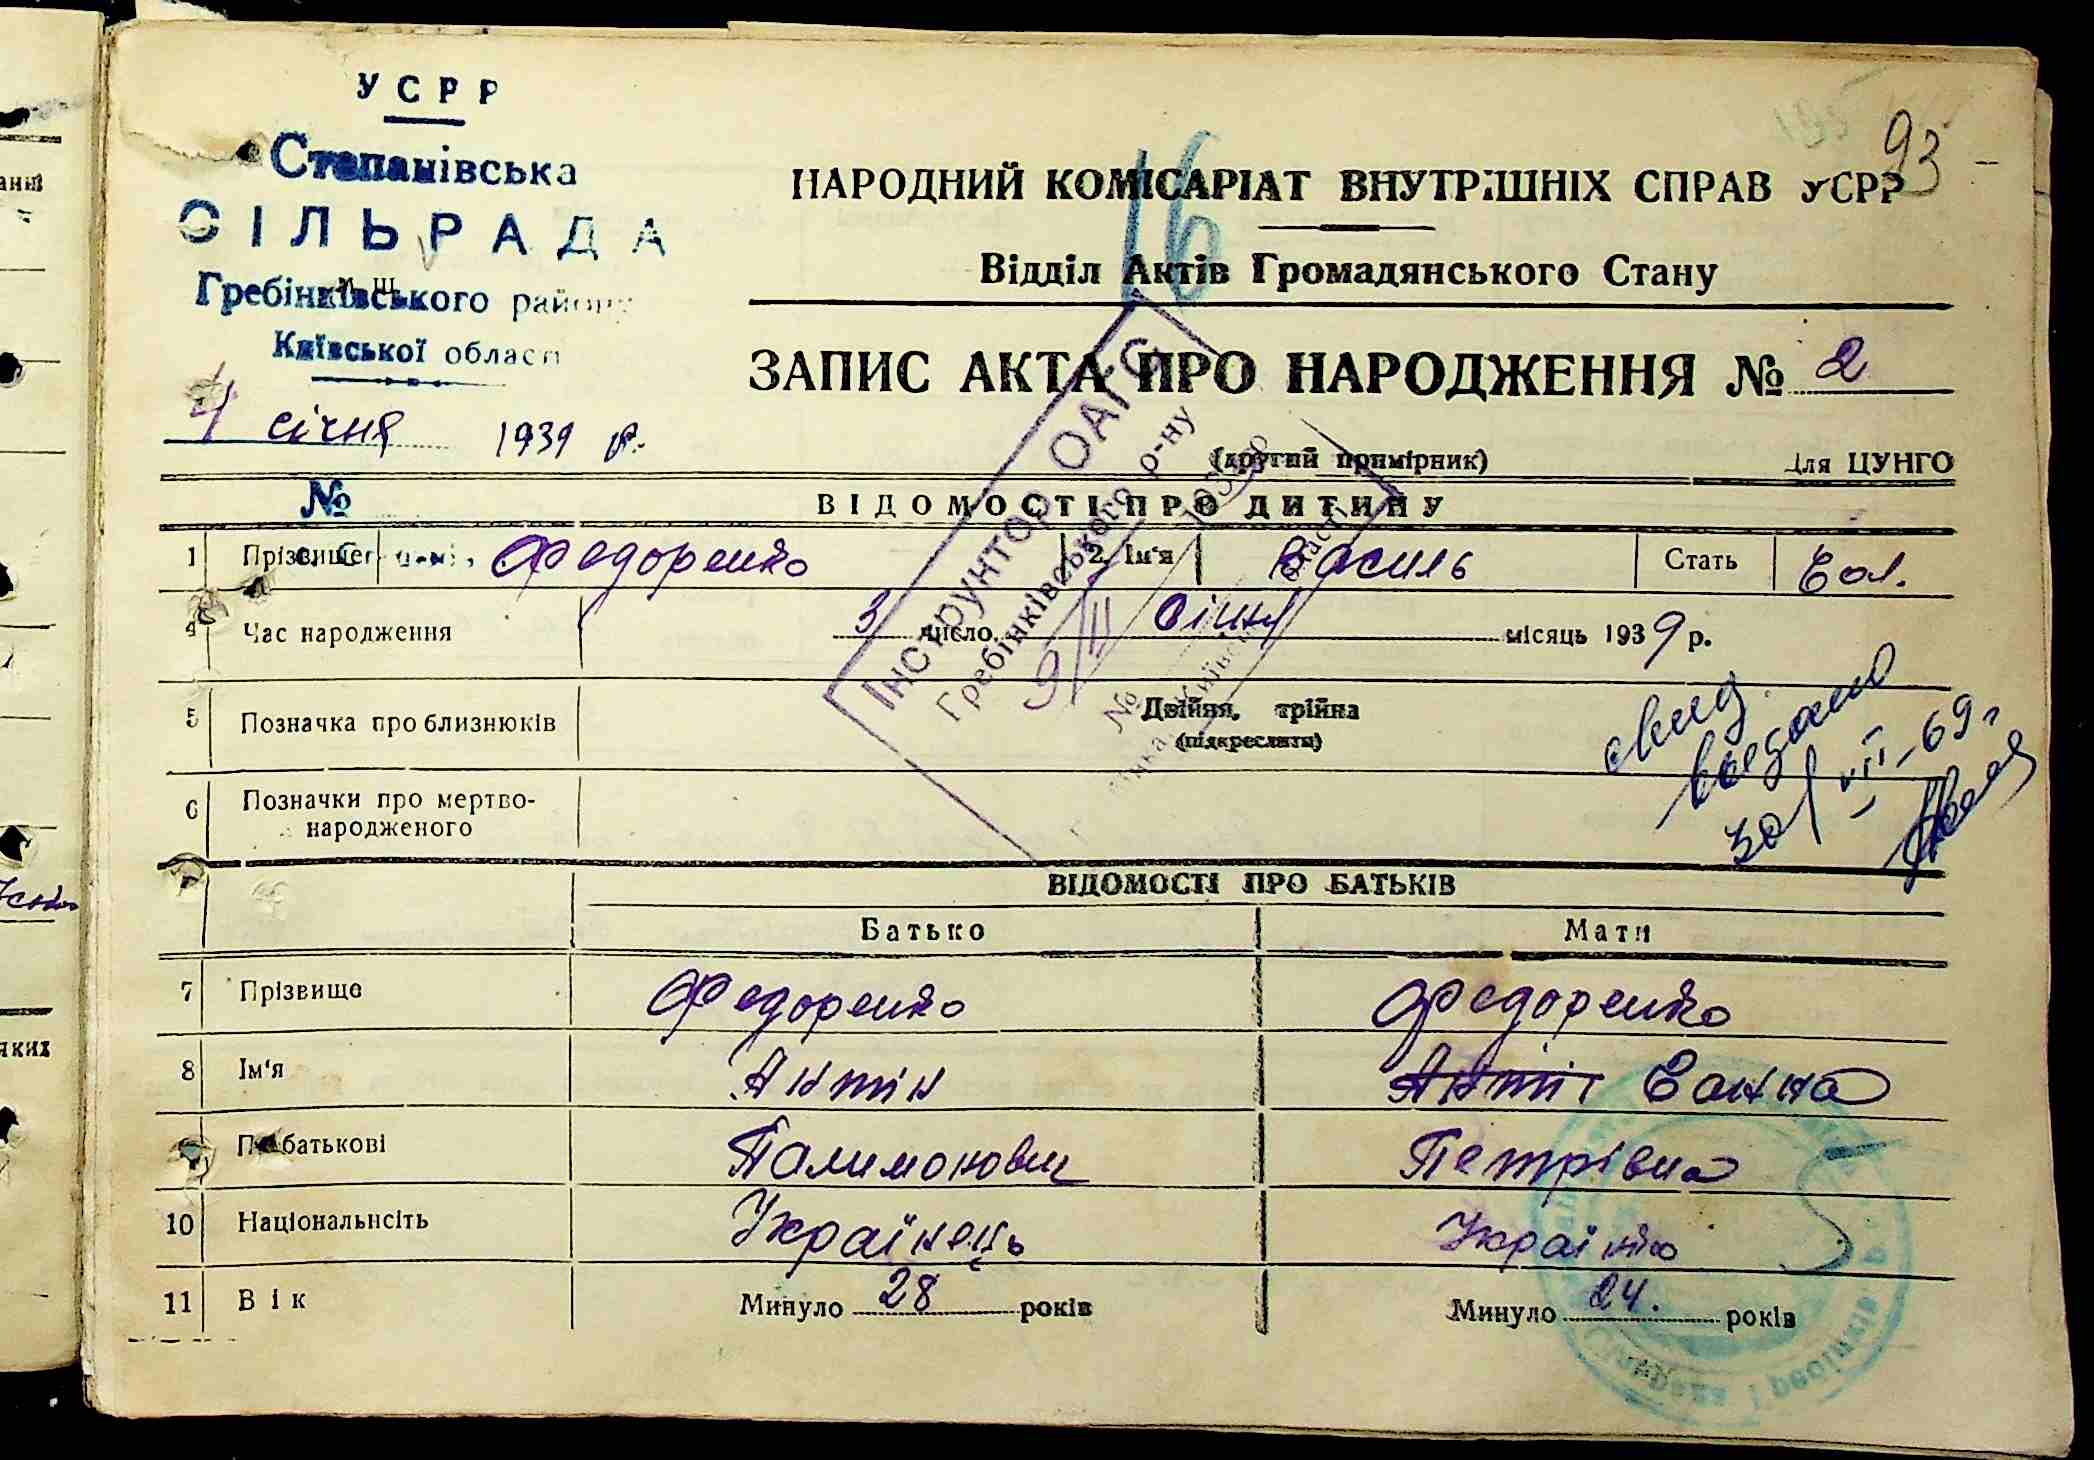 УСРР
Степанівська
СІЛЬРАДА
Гребінківського району
Київської області
4 січня 1939 р.
№
93
16
НАРОДНИЙ КОМІСАРІАТ ВНУТРІШНІХ СПРАВ УСРР
Відділ Актів Громадянського Стану
ЗАПИС АКТА ПРО НАРОДЖЕННЯ № 2
(другий примірник) Для ЦУНГО
Інструктор ОАГС
Гребінківського р-ну
9/II
ВІДОМОСТІ ПРО ДИТИНУ
1 Прізвище Федоренко 2 Ім'я Василь Стать Чол.
4 Час народження 3 число Січня місяць 1939 р.
5 Позначка про близнюків Двійня, трійна
(підкреслити)
6 Позначки про мертво-
народженого
видано
30/VII-69г
ВІДОМОСТІ ПРО БАТЬКІВ
Батько Мати
7 Прізвище Федоренко Федоренко
8 Ім'я Антін Антін Ганна
По батькові Палимонович Петрівна
10 Національність Українець Українка
11 Вік Минуло 28 років Минуло 24. років